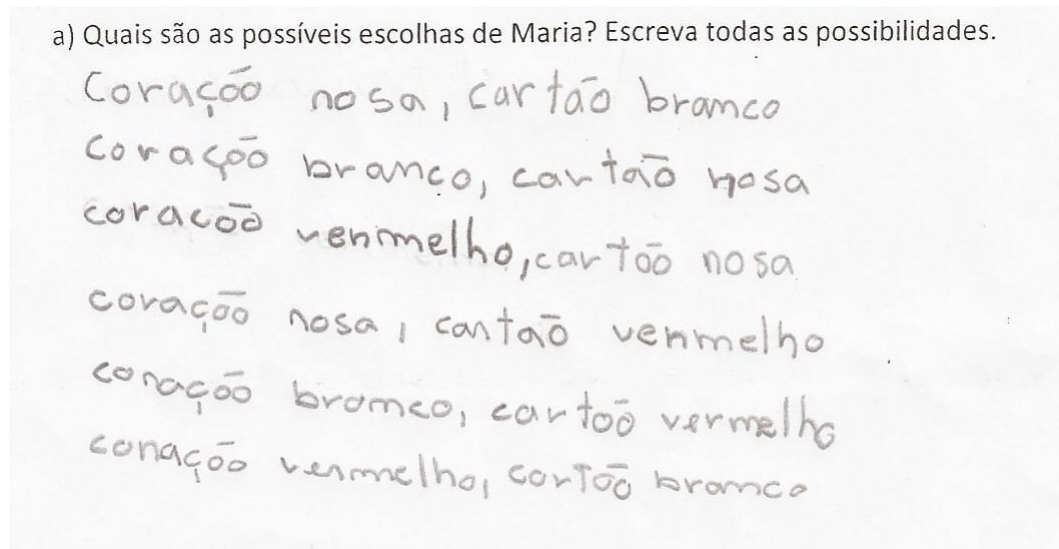 a) Quais são as possíveis escolhas de Maria? Escreva todas as possibilidades.
Coração rosa, cartão branco
coração branco, cartão rosa
coracão vermelho, cartão rosa
coração rosa, cartão vermelho
coração branco, cartão vermelho
coração vermelho, cartão branco